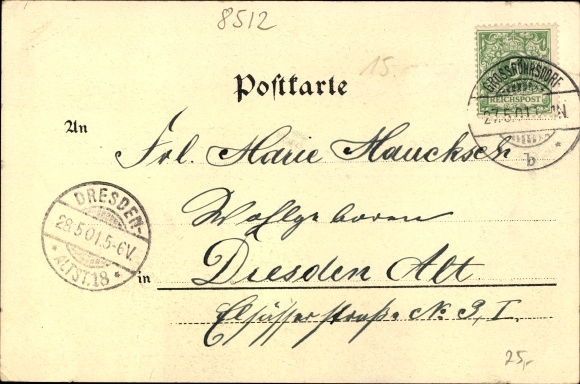 8512
15,-
5
REICHSPOST
GROSSRÖHRSDORF
27.5.01. N.
b
Postkarte
An
Frl. Marie Haucksch
Wohlgeboren
in Dresden Alt.
Elsässerstraße No 3, I.
DRESDEN-
28.5.01.5-6V.
* ALTST.18 *
25,-